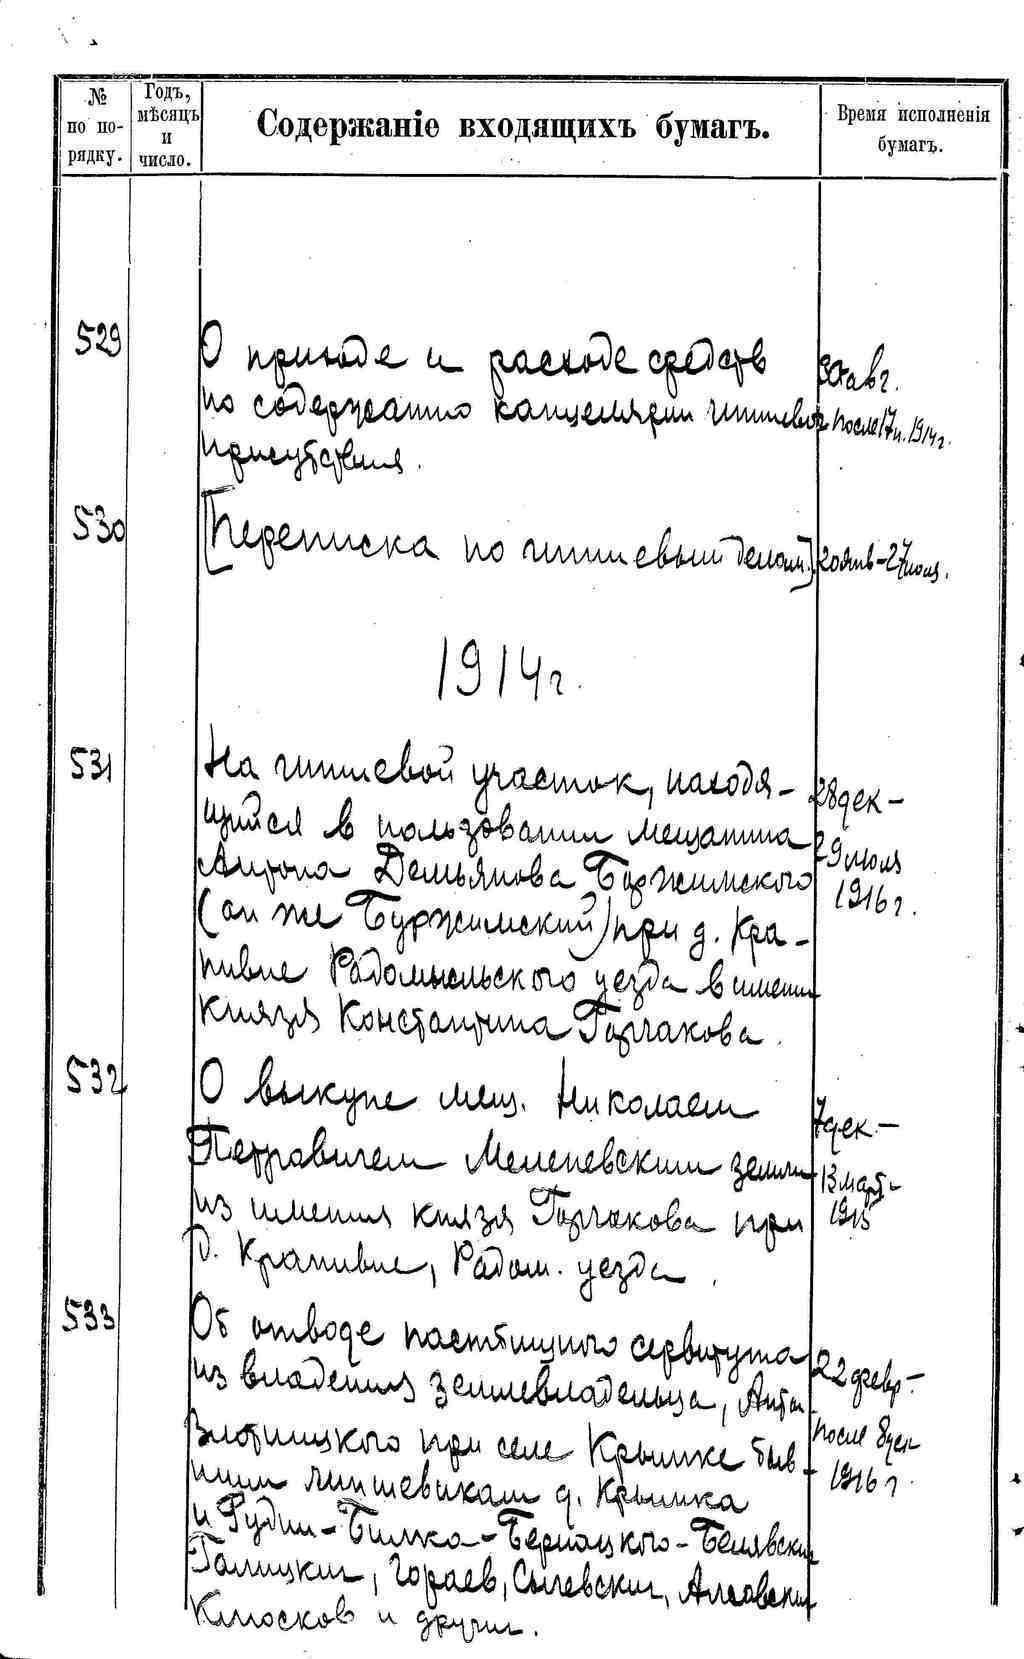 №
по по-
рядку.
Годъ,
мѣсяцъ
и
число.
Содержаніе входящихъ бумагъ.
Время исполненія
бумагъ.
529
О приходе и расходе средств
по содержанию канцелярии чиншевог
присутствия.
30 авг.
после 17 1914г.
530
[Переписка по чиншевым делам.]
20 янв - 27 июля.
1914г.
531
На чиншевой участок, находя-
щийся в пользовании мещанина
Антона Демьянова Боржимского
(он же Буржимский) при д. Кра-
пивне Радомысльского уезда в имении
князя Константина Горчакова.
28 дек -
29 июля
1916г.
532
О выкупе мещ. Николаем
Петровичем Меленевским земли
из имения князя Горчакова при
д. Крапивне, Радом. уезда.
7 дек -
13 март
1915
533
Об отводе пастбищного сервитута
из владения землевладельца, Антон
Злотницкого при селе Крымке быв-
шим чиншевикам д. Крымка
и Рудни-Билка-Бернацкого-Белявским
Галицким, Гораев, Сычевским,
Клюсков и другим.
22 февр -
после 8 дек
1916г.